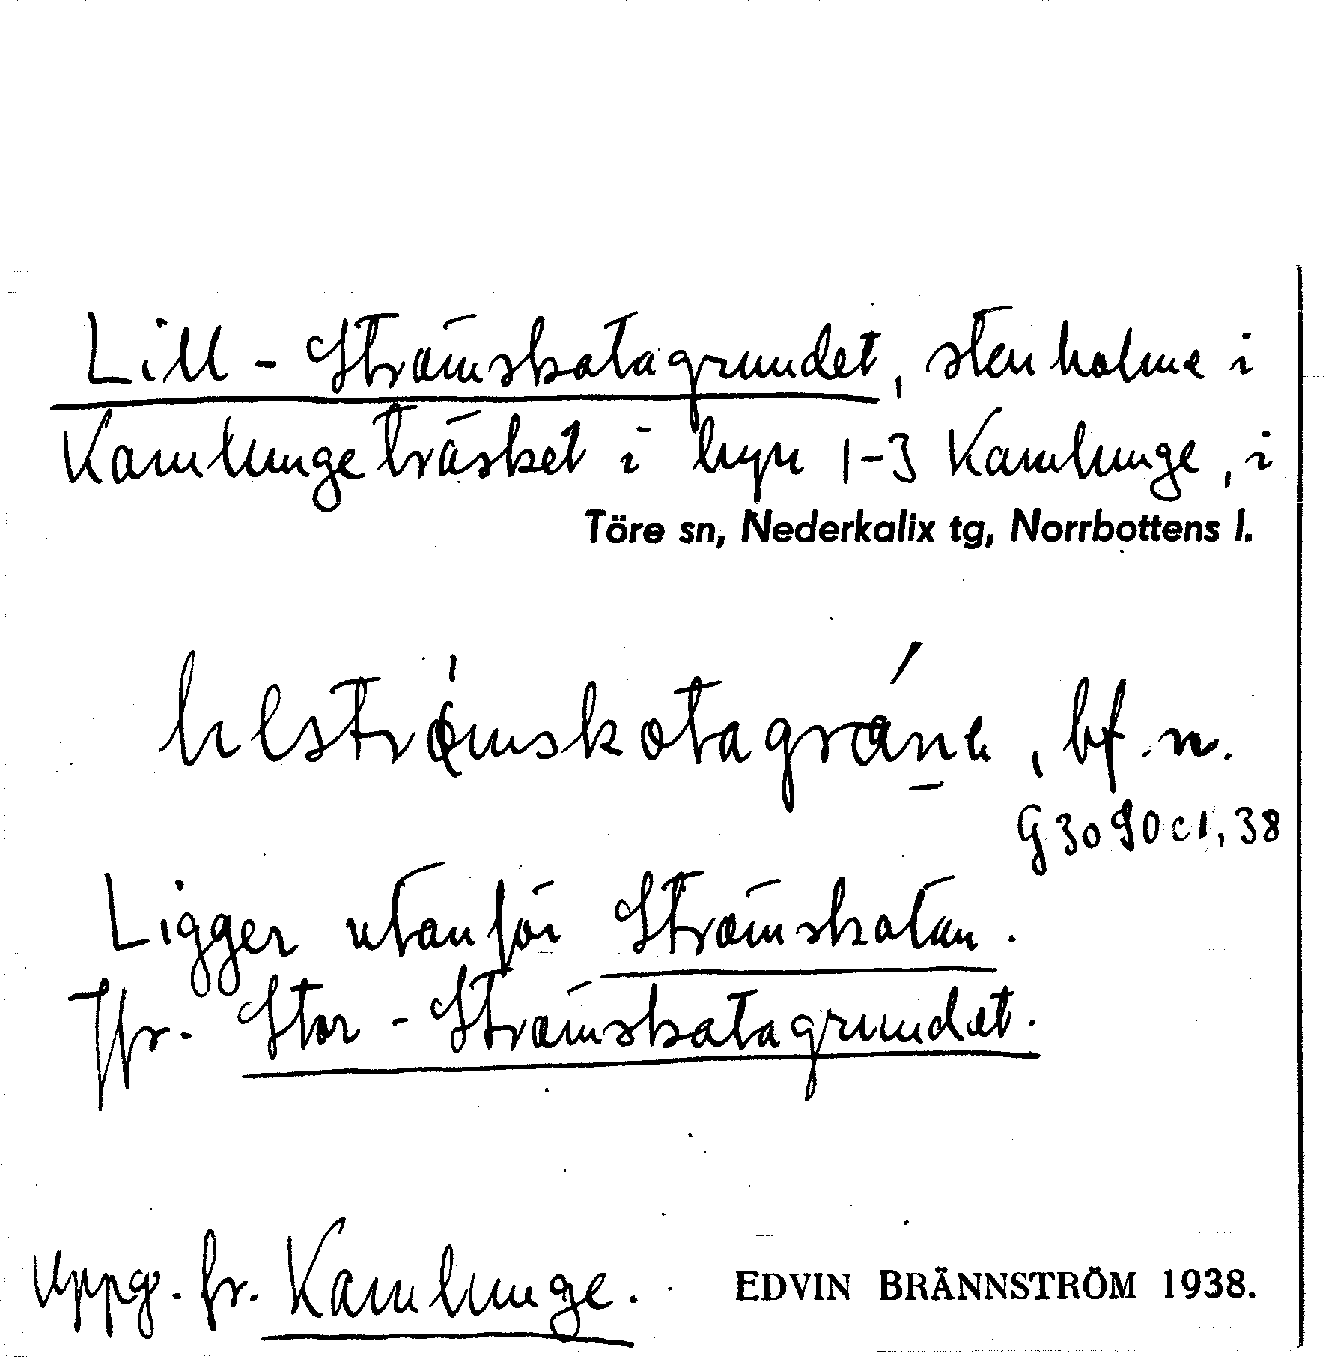 Lill-Strömskatagrundet, stenholme i
Kamlungeträsket i byn 1-3 Kamlunge, i
Töre sn, Nederkalix tg, Norrbottens l.
bf. n.
G 3090 c 1, 38
Ligger utanför Strömskatan.
Jfr. Stor-Strömskatagrundet.
Uppg. fr. Kamlunge.
EDVIN BRÄNNSTRÖM 1938.